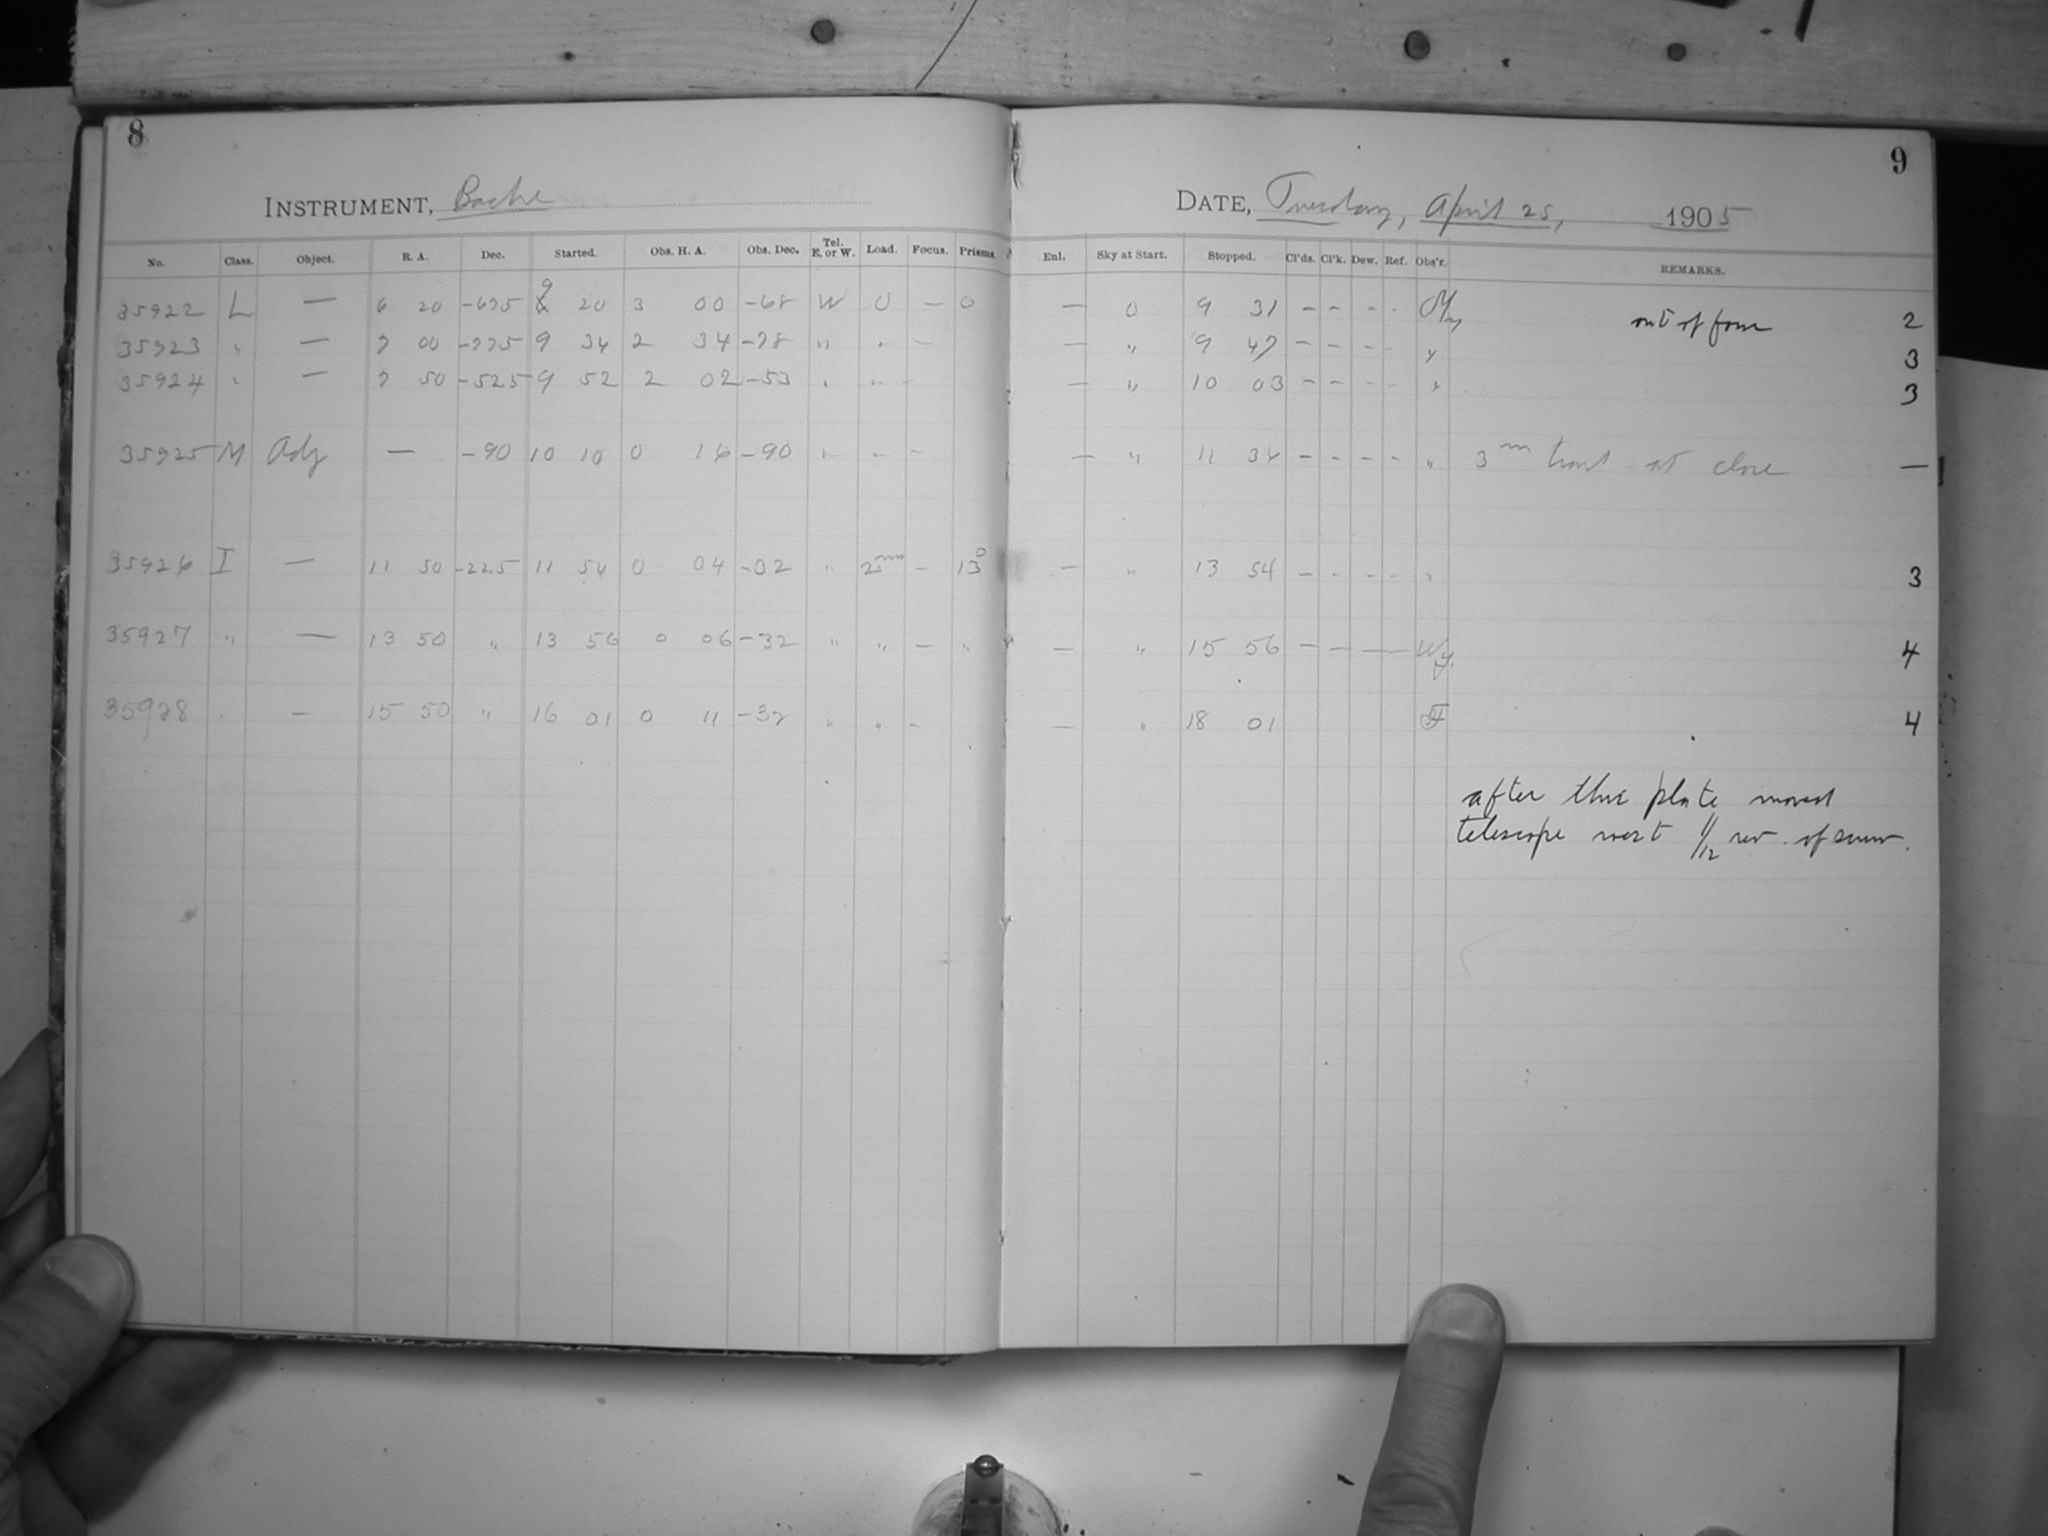 8
INSTRUMENT, Bache
No. Class. Object. R. A. Dec. Started. Obs. H. A. Obs. Dec. Tel. E. or W. Load. Focus. Prisms.
35922 L — 6 20 -675 9 20 3 00 -68 W 0 — 0
35923 " — 7 00 -775 9 34 2 34 -78 " " —
35924 " — 7 50 -525 9 52 2 02 -53 " " —
35925 M Adj — -90 10 10 0 16 -90 " " —
35926 I — 11 50 -225 11 54 0 04 -02 " 2 — 13
35927 " — 13 50 " 13 56 0 06 -32 " " — "
35928 " — 15 50 " 16 01 0 11 -32 " " —
9
DATE, Tuesday, April 25, 1905
Enl. Sky at Start. Stopped. Cl'ds. Cl'k. Dew. Ref. Obs'r. REMARKS.
— 0 9 31 — — — - out of 2
— " 9 47 — — — - " 3
— " 10 03 — — — - " 3
— " 11 34 — — — — " 3m at close —
— " 13 54 — - — - " 3
— " 15 56 — — — — Wy. 4
— " 18 01 4
after this plate moved
telescope west 1/12 rev. of screw.